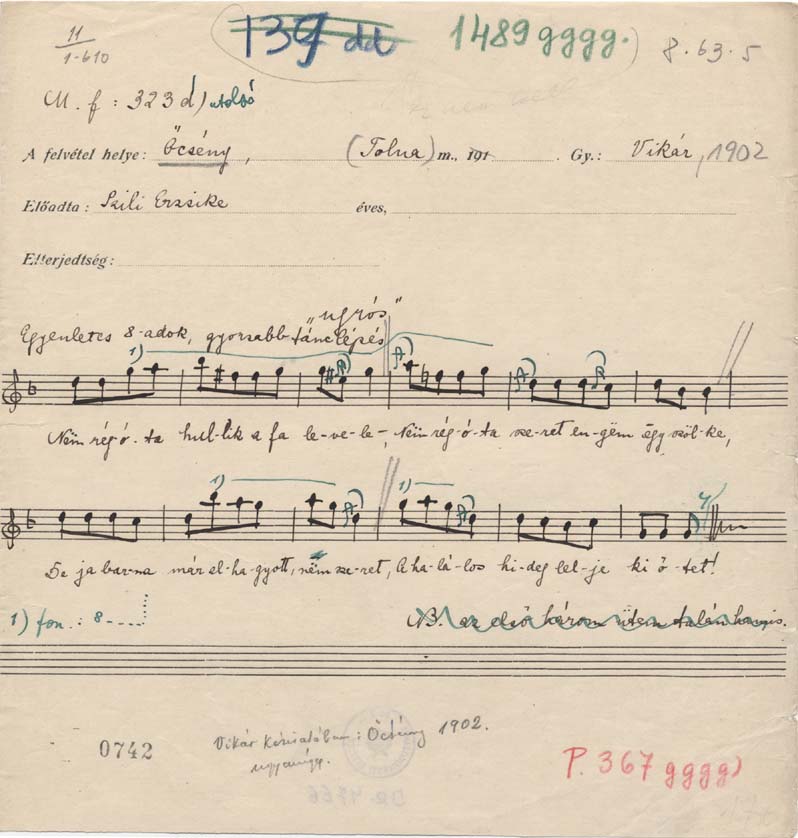 11
1-610
139 dd
1489 gggg.)
8.63.5
M. f: 323 d) utolsó
A felvétel helye: Őcsény, (Tolna) m., 191 . Gy.: Vikár, 1902
Előadta: Szili Erzsike éves,
Elterjedtség:
Egyenletes 8-adok, gyorsabb tánclépés „ugrós”
1)
Nëm rég-ó-ta hul-lik a fa le-ve-le-, Nëm rég-ó-ta sze-ret en-gëm ëgy szöl-ke,
1) 1)
De ja bar-na már el-ha-gyott, nëm sze-ret, A ha-lá-los hi-deg lel-je ki ő-tet!
1) fon.: 8----
NB. az első három ütem talán hamis.
0742
Vikár kéziratában: Öcsény 1902.
ugyanígy.
P. 367 gggg)